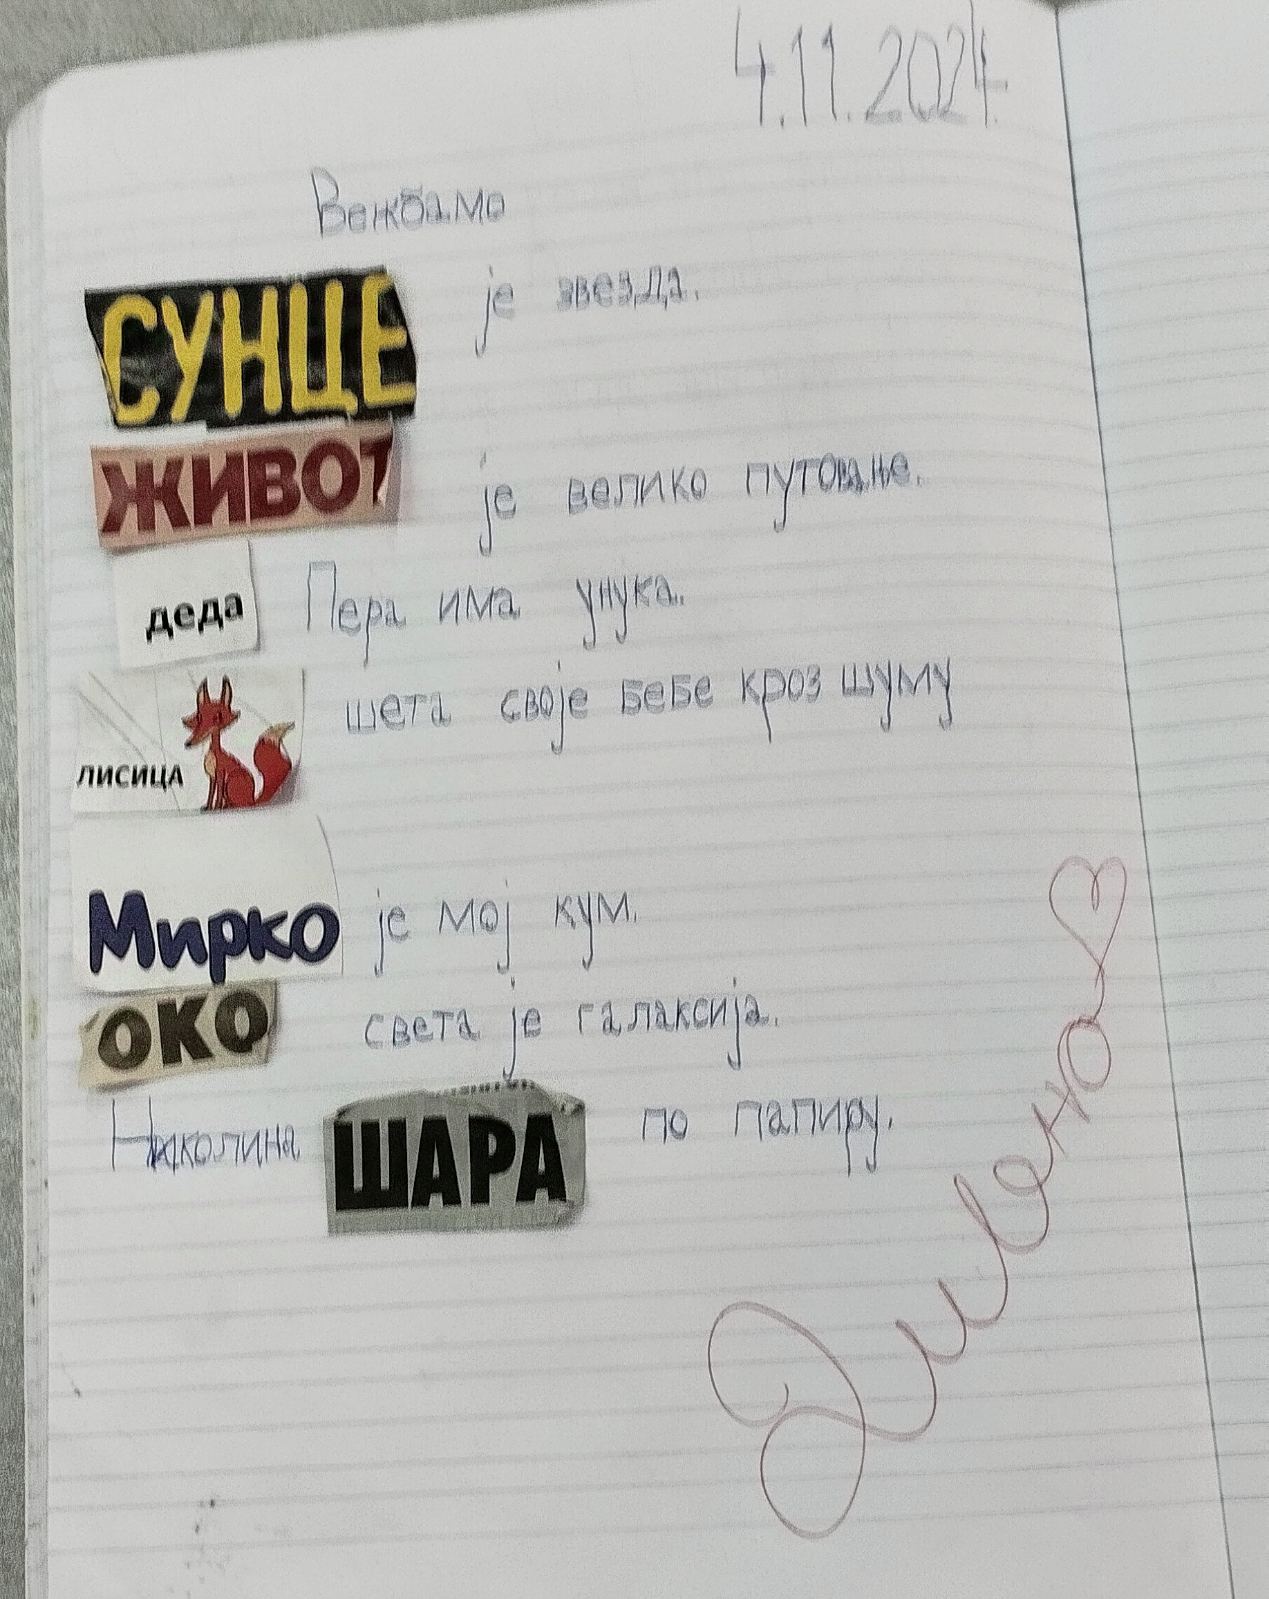 4.11.2024.
Вежбамо
СУНЦЕ је звезда.
ЖИВОТ је велико путовање.
деда Пера има унука.
ЛИСИЦА шета своје бебе кроз шуму
Мирко је мој кум.
ОКО света је галаксија.
Николина ШАРА по папиру.
Дивно